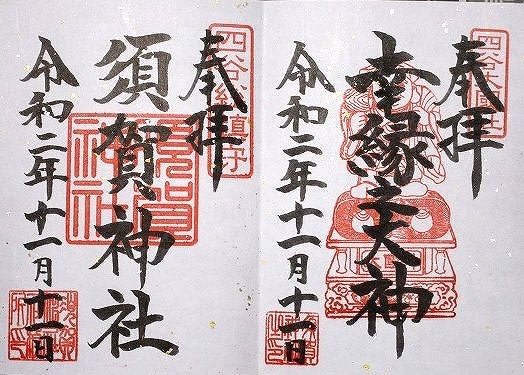 四谷大國社
奉拝
幸縁主大神
令和二年十一月十一日
四谷総鎮守
奉拝
須賀神社
須賀神社
令和二年十一月十一日